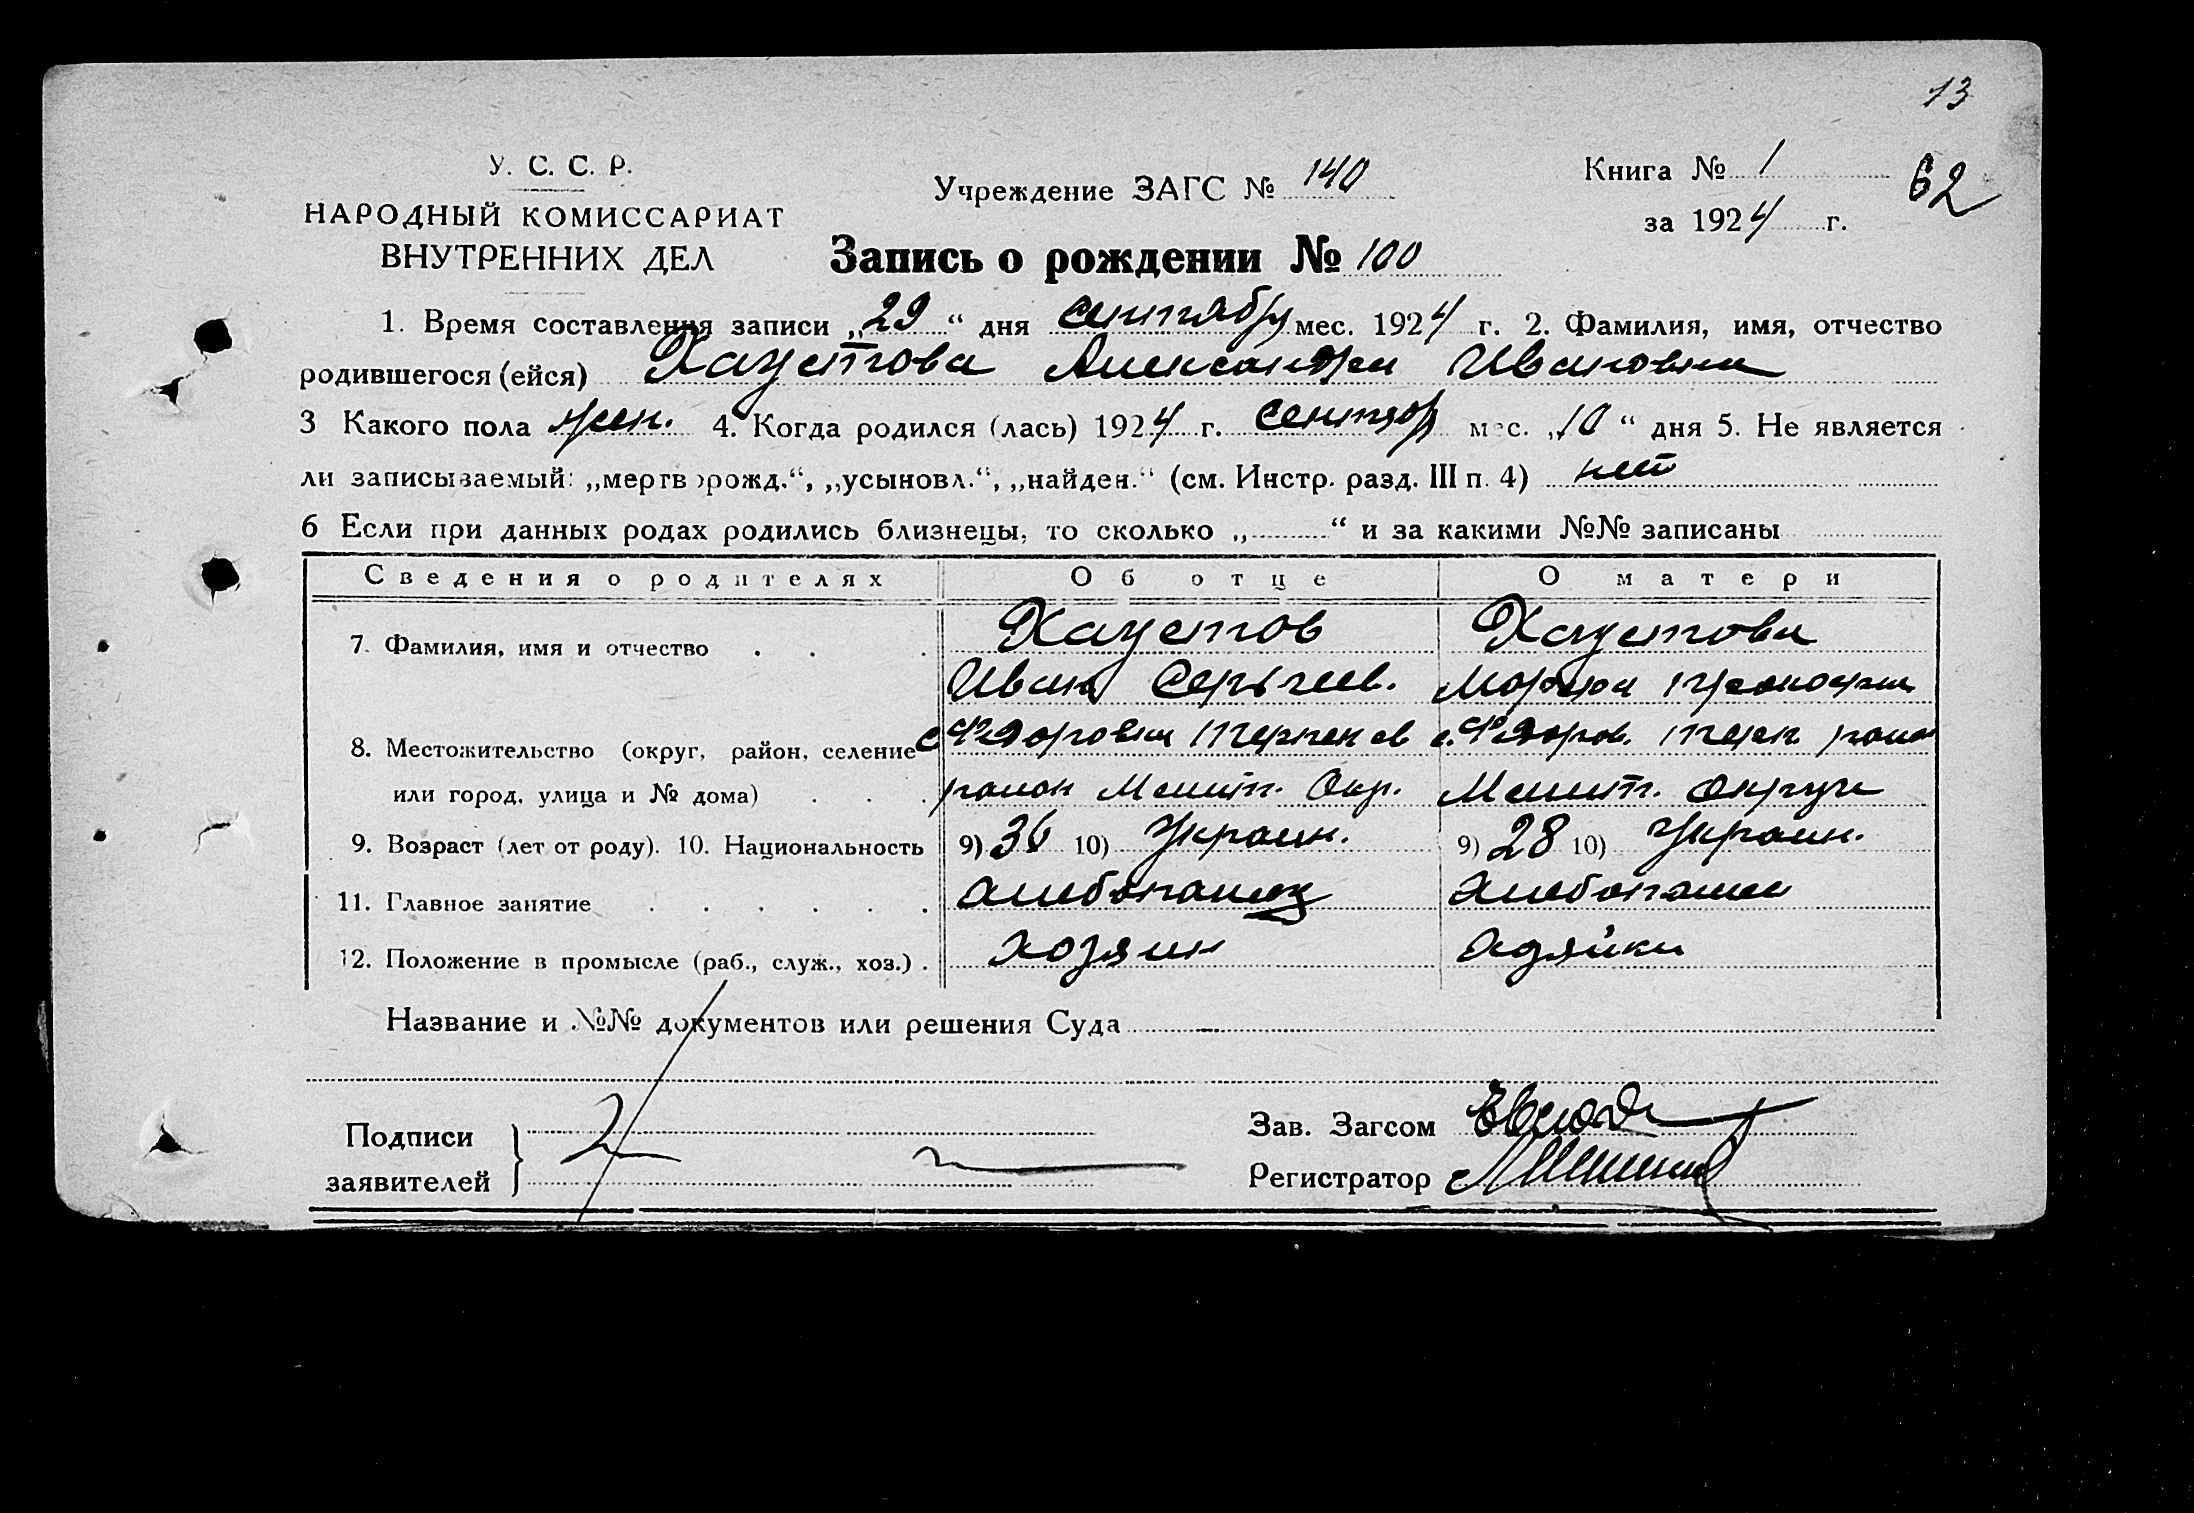 13
У. С. С. Р.
НАРОДНЫЙ КОМИССАРИАТ
ВНУТРЕННИХ ДЕЛ
Учреждение ЗАГС № 140
Книга № 1
62
за 1924 г.
Запись о рождении № 100
1. Время составления записи „29“ дня сентября мес. 1924 г. 2. Фамилия, имя, отчество
родившегося (ейся) Хаустова Александра Ивановна
3 Какого пола жен. 4. Когда родился (лась) 1924 г. сентябр мес. „10“ дня 5. Не является
ли записываемый: „мертворожд.“, „усыновл.“, „найден.“ (см. Инстр. разд. III п. 4) нет
6 Если при данных родах родились близнецы, то сколько „ “ и за какими №№ записаны
Сведения о родителях Об отце О матери
7. Фамилия, имя и отчество Хаустов Хаустова
Иван Сергеев. Марфа
8. Местожительство (округ, район, селение с Федоровка Терпенов с. Федоров. Терп район
или город, улица и № дома) район Мелит. Окр. Мелит. округа
9. Возраст (лет от роду). 10. Национальность 9) 36 10) Украин. 9) 28 10) Украин.
11. Главное занятие хлебопашец хлебопашец
12. Положение в промысле (раб., служ., хоз.) хозяин хозяйка
Название и №№ документов или решения Суда —
Подписи
заявителей
Зав. Загсом
Регистратор